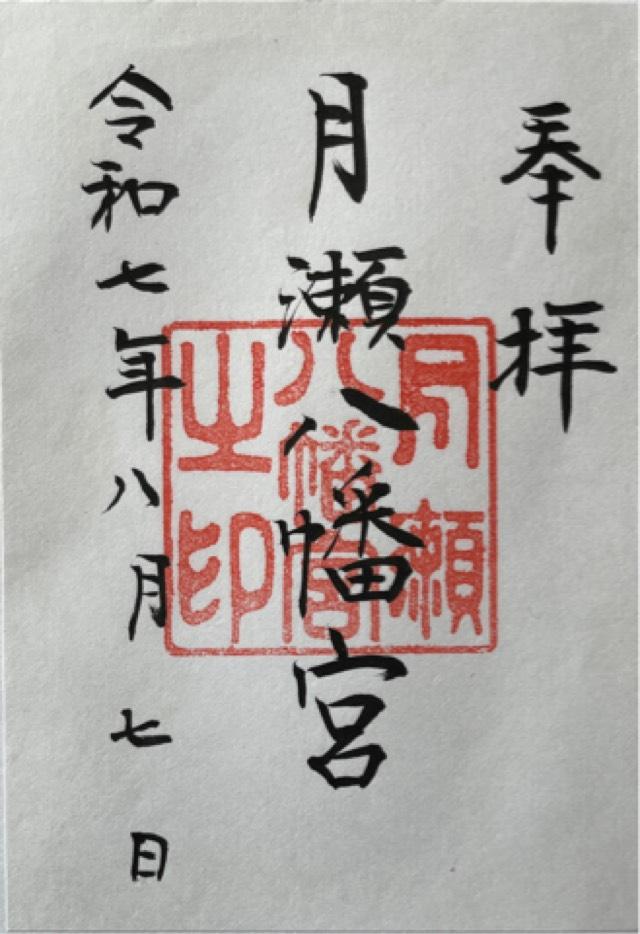 奉拝
月瀬八幡宮
月瀬
八幡宮
之印
令和七年八月七日